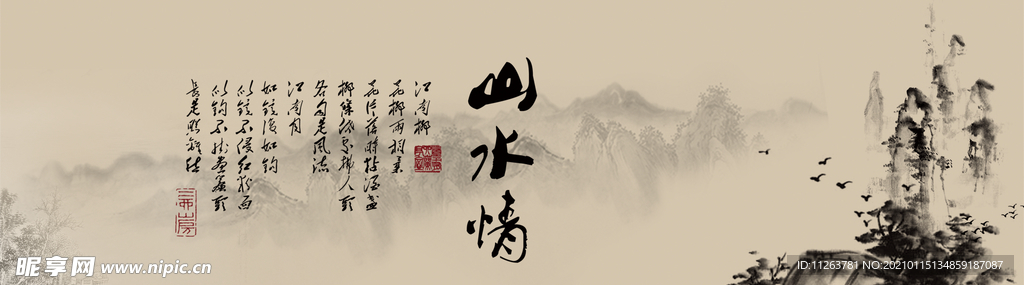 山水情
江南柳
花柳兩相柔
花片落時黏酒盞
柳條低處拂人頭
各自是風流
江南月
如鏡復如鉤
似鏡不侵紅粉面
似鉤不掛畫簾頭
長是照離愁
昵享网 www.nipic.cn
ID:11263781 NO:20210115134859187087